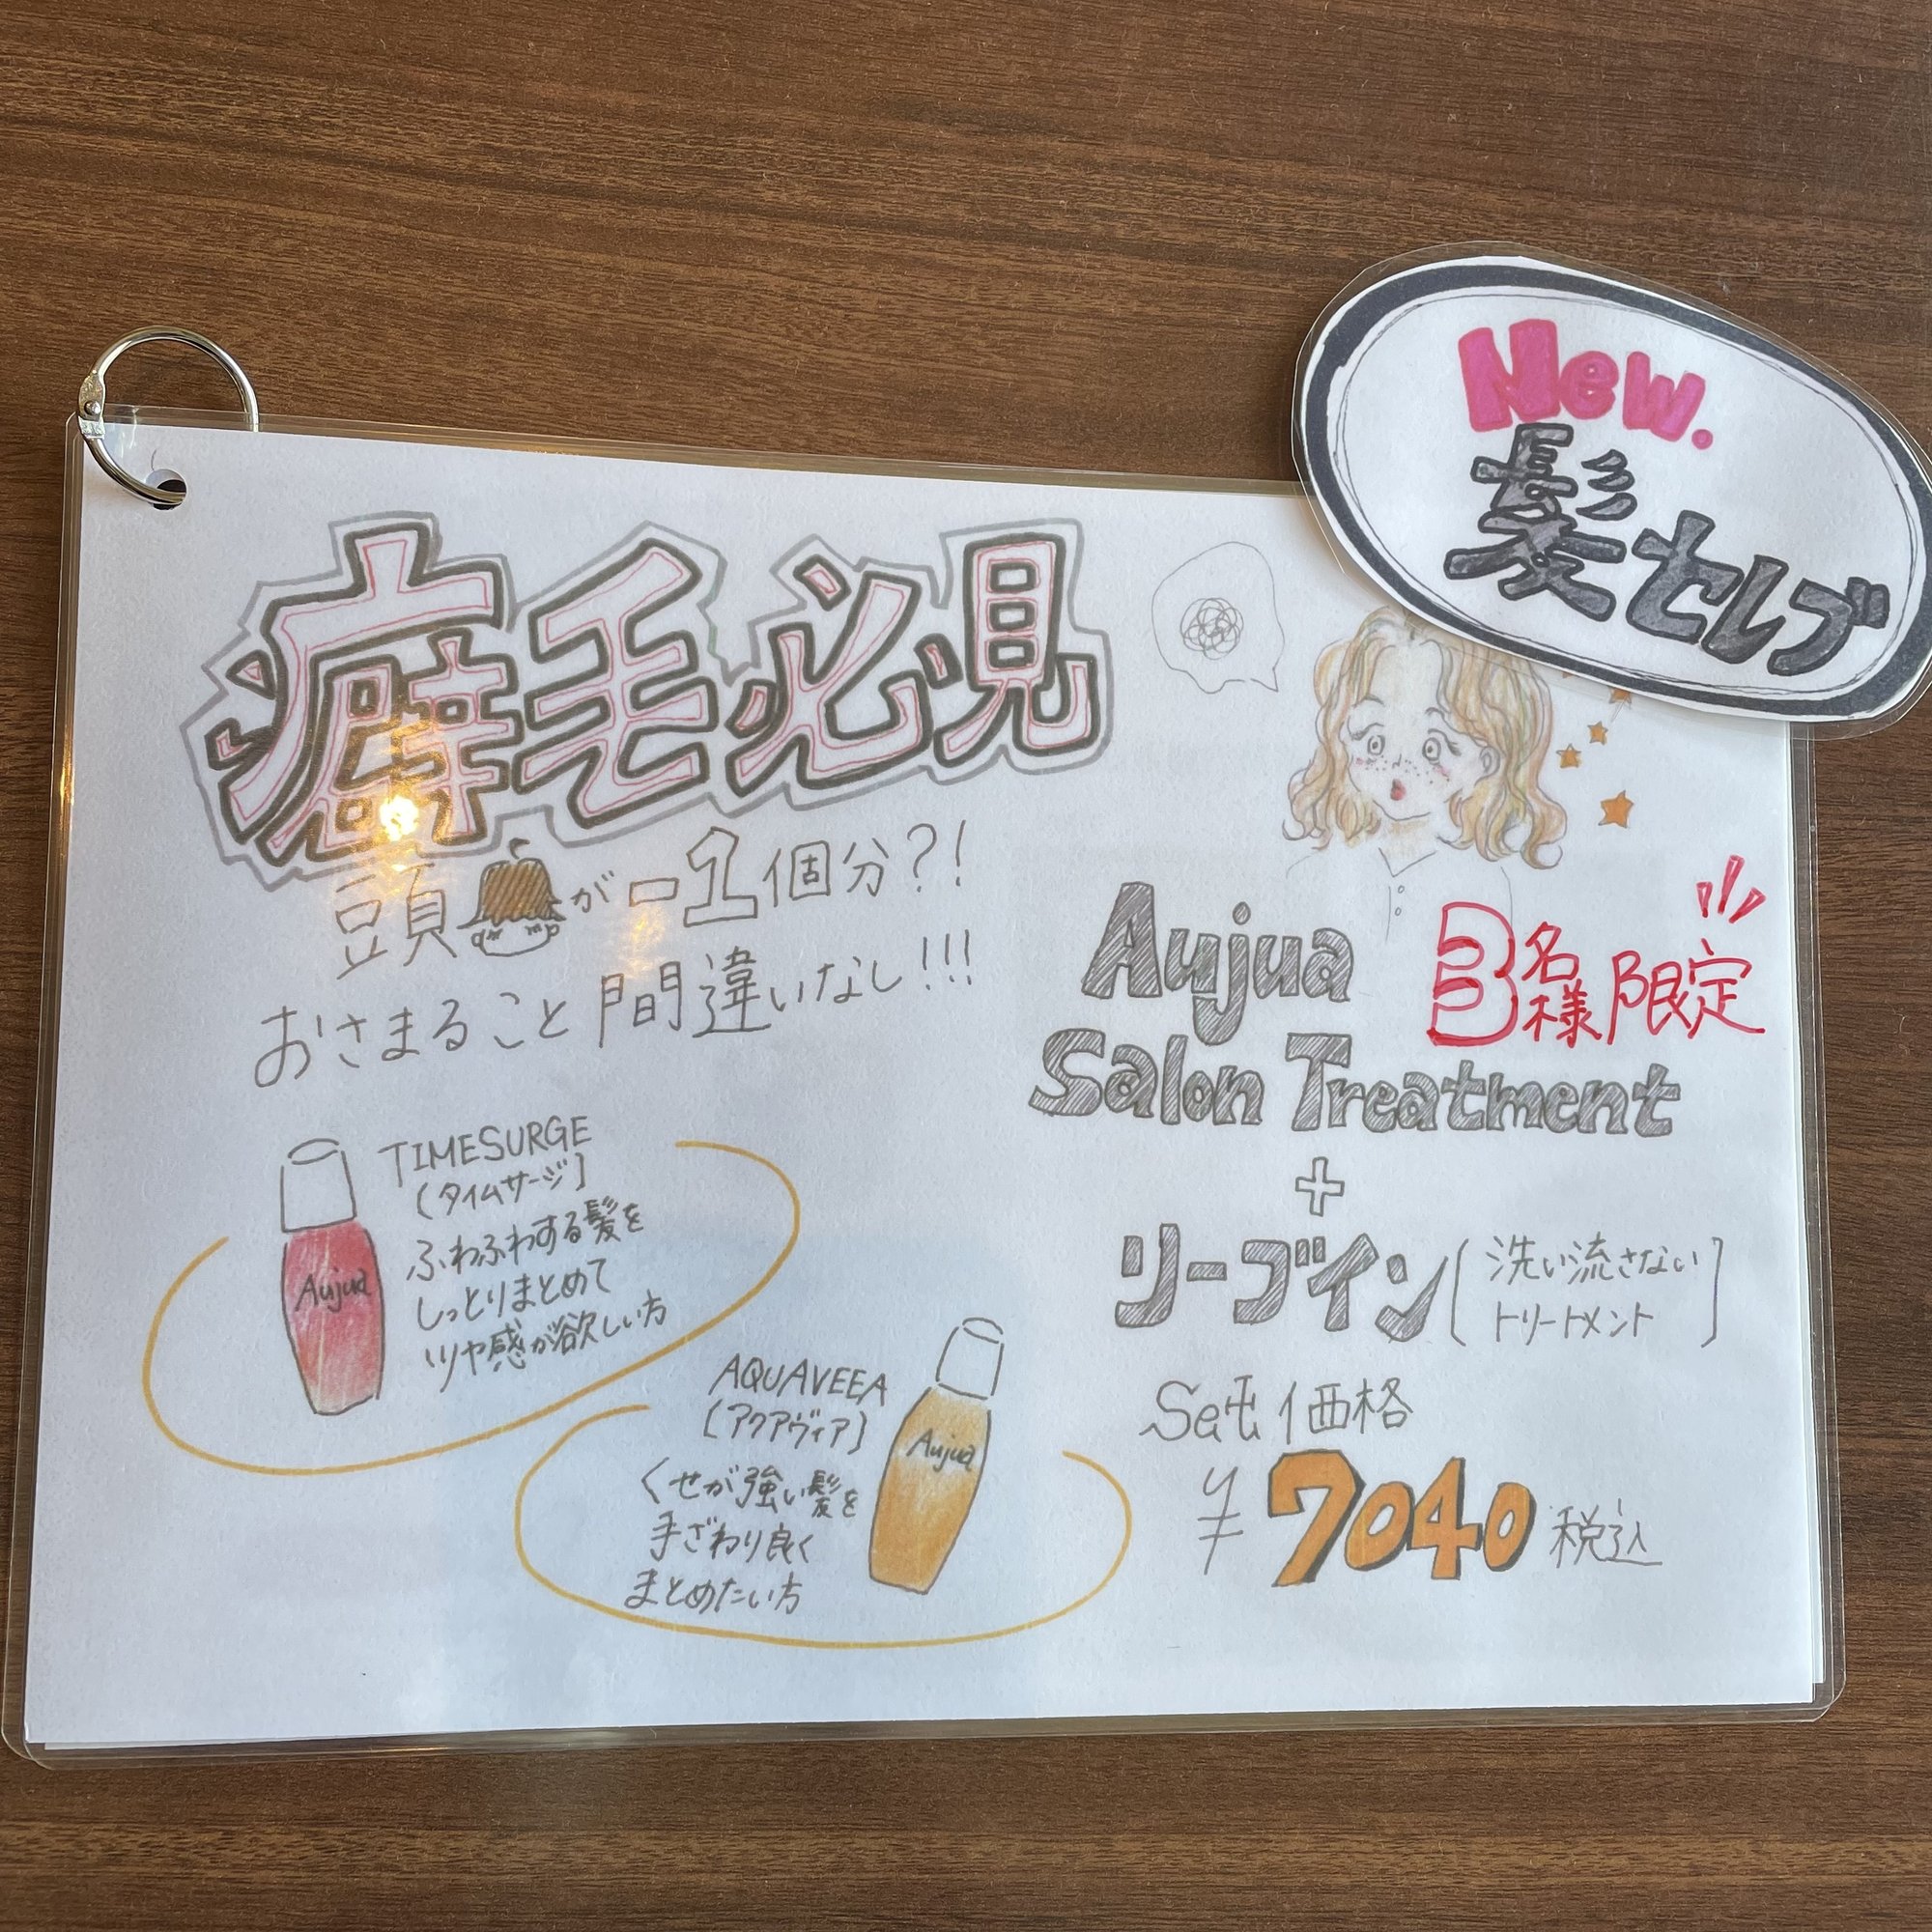 New.
髪セレブ
癖毛必見
頭が-1個分?!
おさまること間違いなし!!!
Aujua
3名様限定
Salon Treatment
+
リーブイン(洗い流さない
トリートメント)
TIMESURGE
(タイムサージ)
ふわふわする髪を
しっとりまとめて
ツヤ感が欲しい方
Aujua
AQUAVEEA
(アクアヴィア)
くせが強い髪を
手ざわり良く
まとめたい方
Aujua
価格
¥7040税込